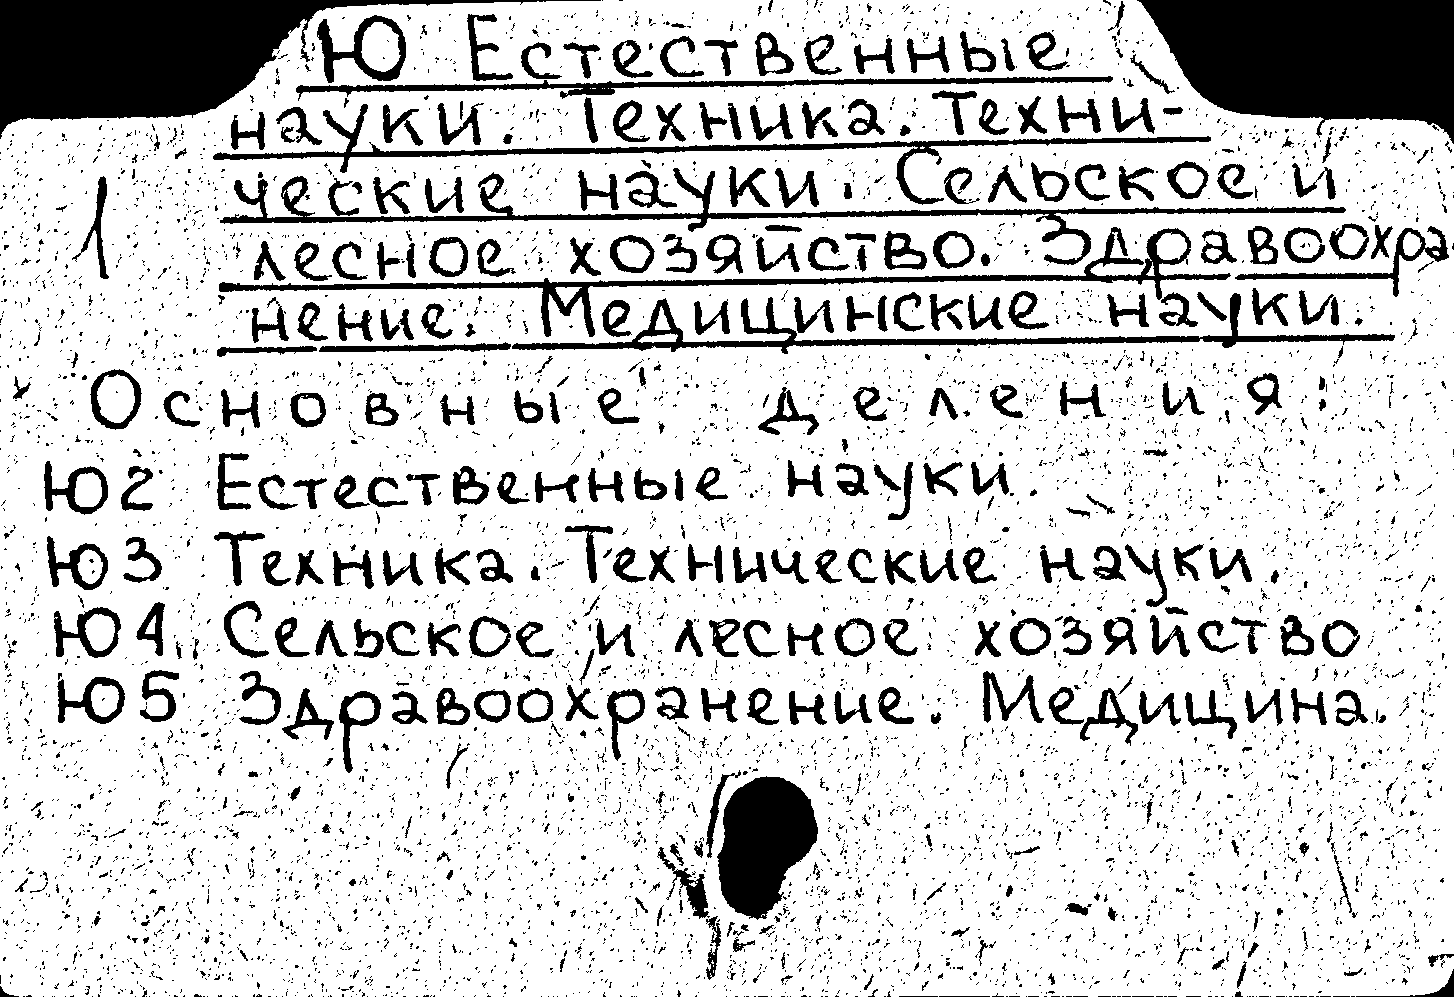 Ю Естественные
науки. Техника. Техни-
1 ческие науки. Сельское и
лесное хозяйство. Здравоохра
нение. Медицинские науки.
Основные деления:
Ю2 Естественные науки.
Ю3 Техника. Технические науки.
Ю4 Сельское и лесное хозяйство
Ю5 Здравоохранение. Медицина.